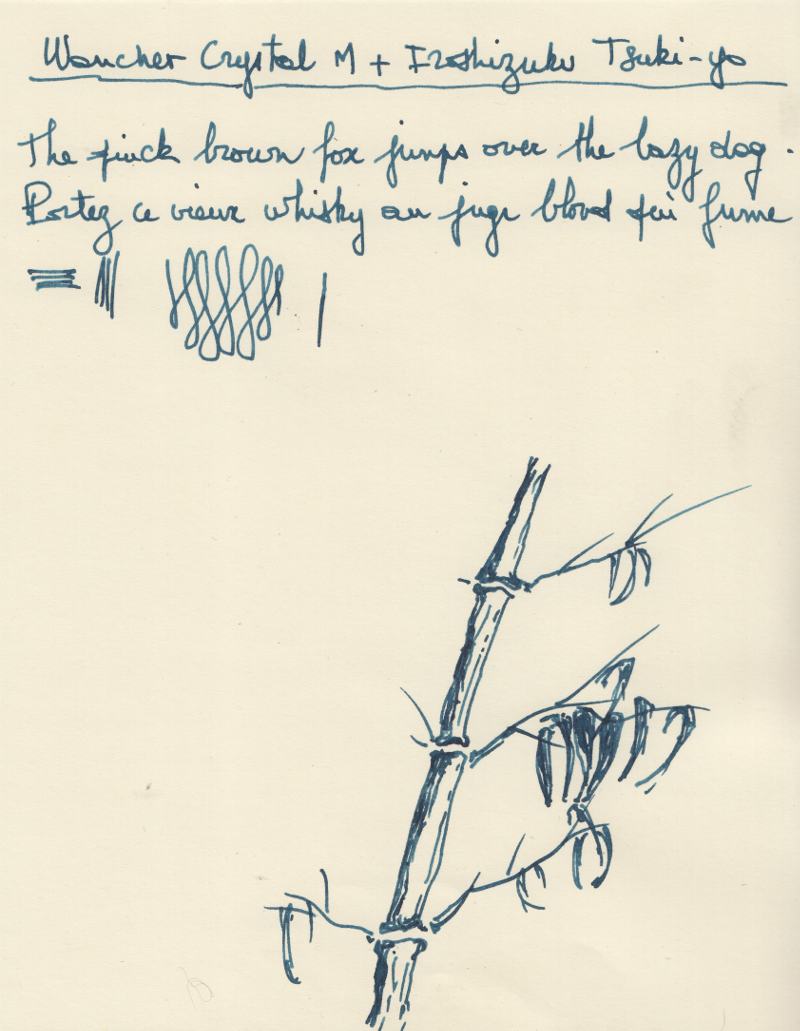 Wancher Crystal M + Iroshizuku Tsuki-yo
The quick brown fox jumps over the lazy dog.
Portez ce vieux whisky au juge blond qui fume